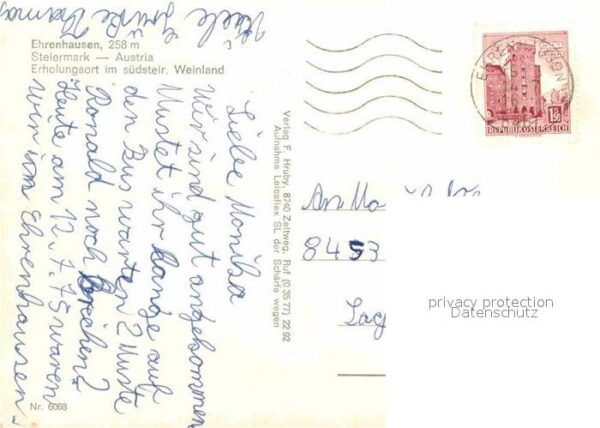 Ehrenhausen, 258 m
Steiermark — Austria
Erholungsort im südsteir. Weinland
Viele Grüße
Liebe Monika
Wir sind gut angekommen
Mustet ihr lange auf
den Bus warten? Muste
Ronald noch brechen?
Heute am 12.7.75 waren
wir im Ehrenhausen
Verlag F. Hruby, 8740 Zeltweg, Ruf (0 35 77) 22 92
Aufnahme Leicaflex SL der Schärfe wegen
Nr. 6068
1.50
REPUBLIK ÖSTERREICH
An
8453
privacy protection
Datenschutz